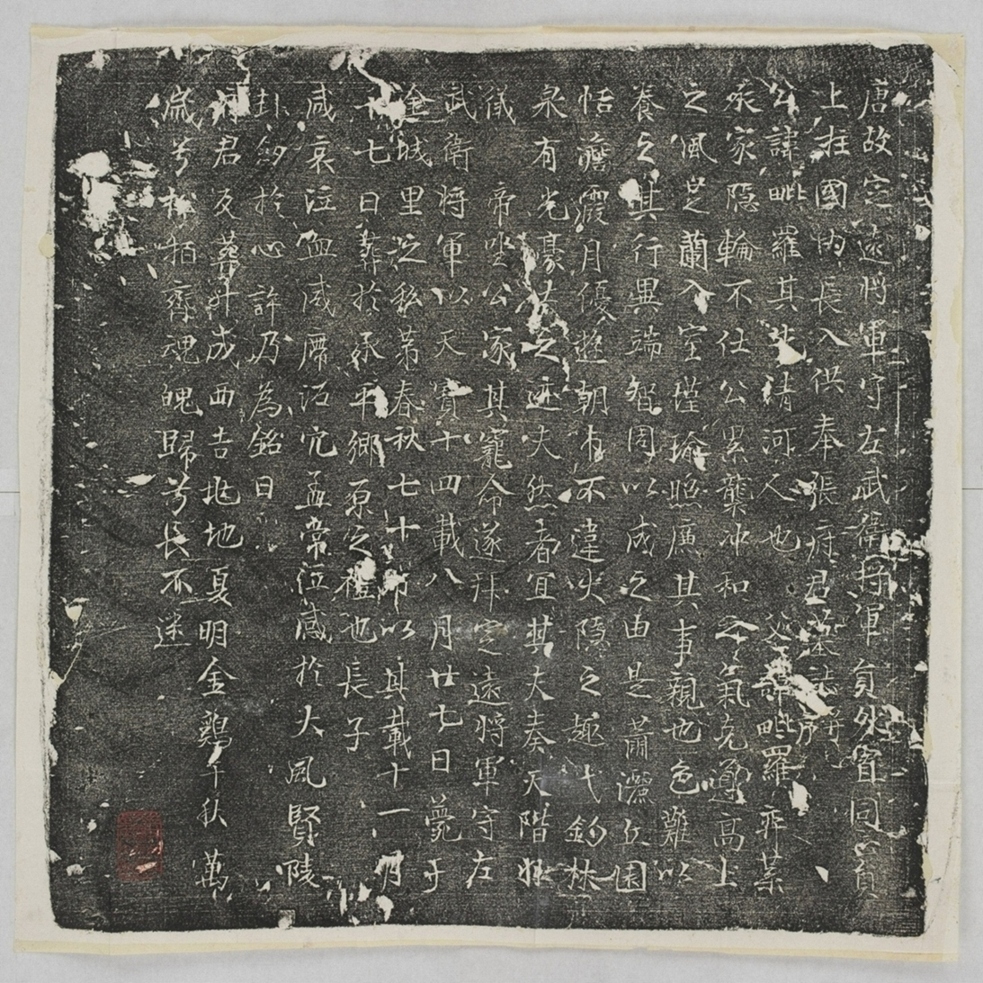 唐故定遠將軍守左武衛將軍員外置同正員
上柱國內長入供奉張府君墓誌并序
公諱毗羅其先清河人也父諱毗羅耶業
承家隱輪不仕公累襲沖和之氣克邁高上
之佩是蘭入室瑾瑜照廡其事親也色難以
養之其行異端智周以成之由是蕭灑丘園
恬澹霞月優遊朝市不違火隱之趣弋釣林
泉有光豪之迹夫然者宜其夫奏天階
帝坐公家其寵命遂拜定遠將軍守左
武衛將軍以天寶十四載八月廿七日薨于
金城里之私第春秋七十有以其載十一月
十七日葬於承平鄉原之禮也長子
咸哀泣血感席孟常泣感於大風賢陵
卦劍於心許乃為銘曰
府君反葬叶成西吉兆地夏明金鷄千秋萬
歲兮松栢齊魂魄歸兮長不迷